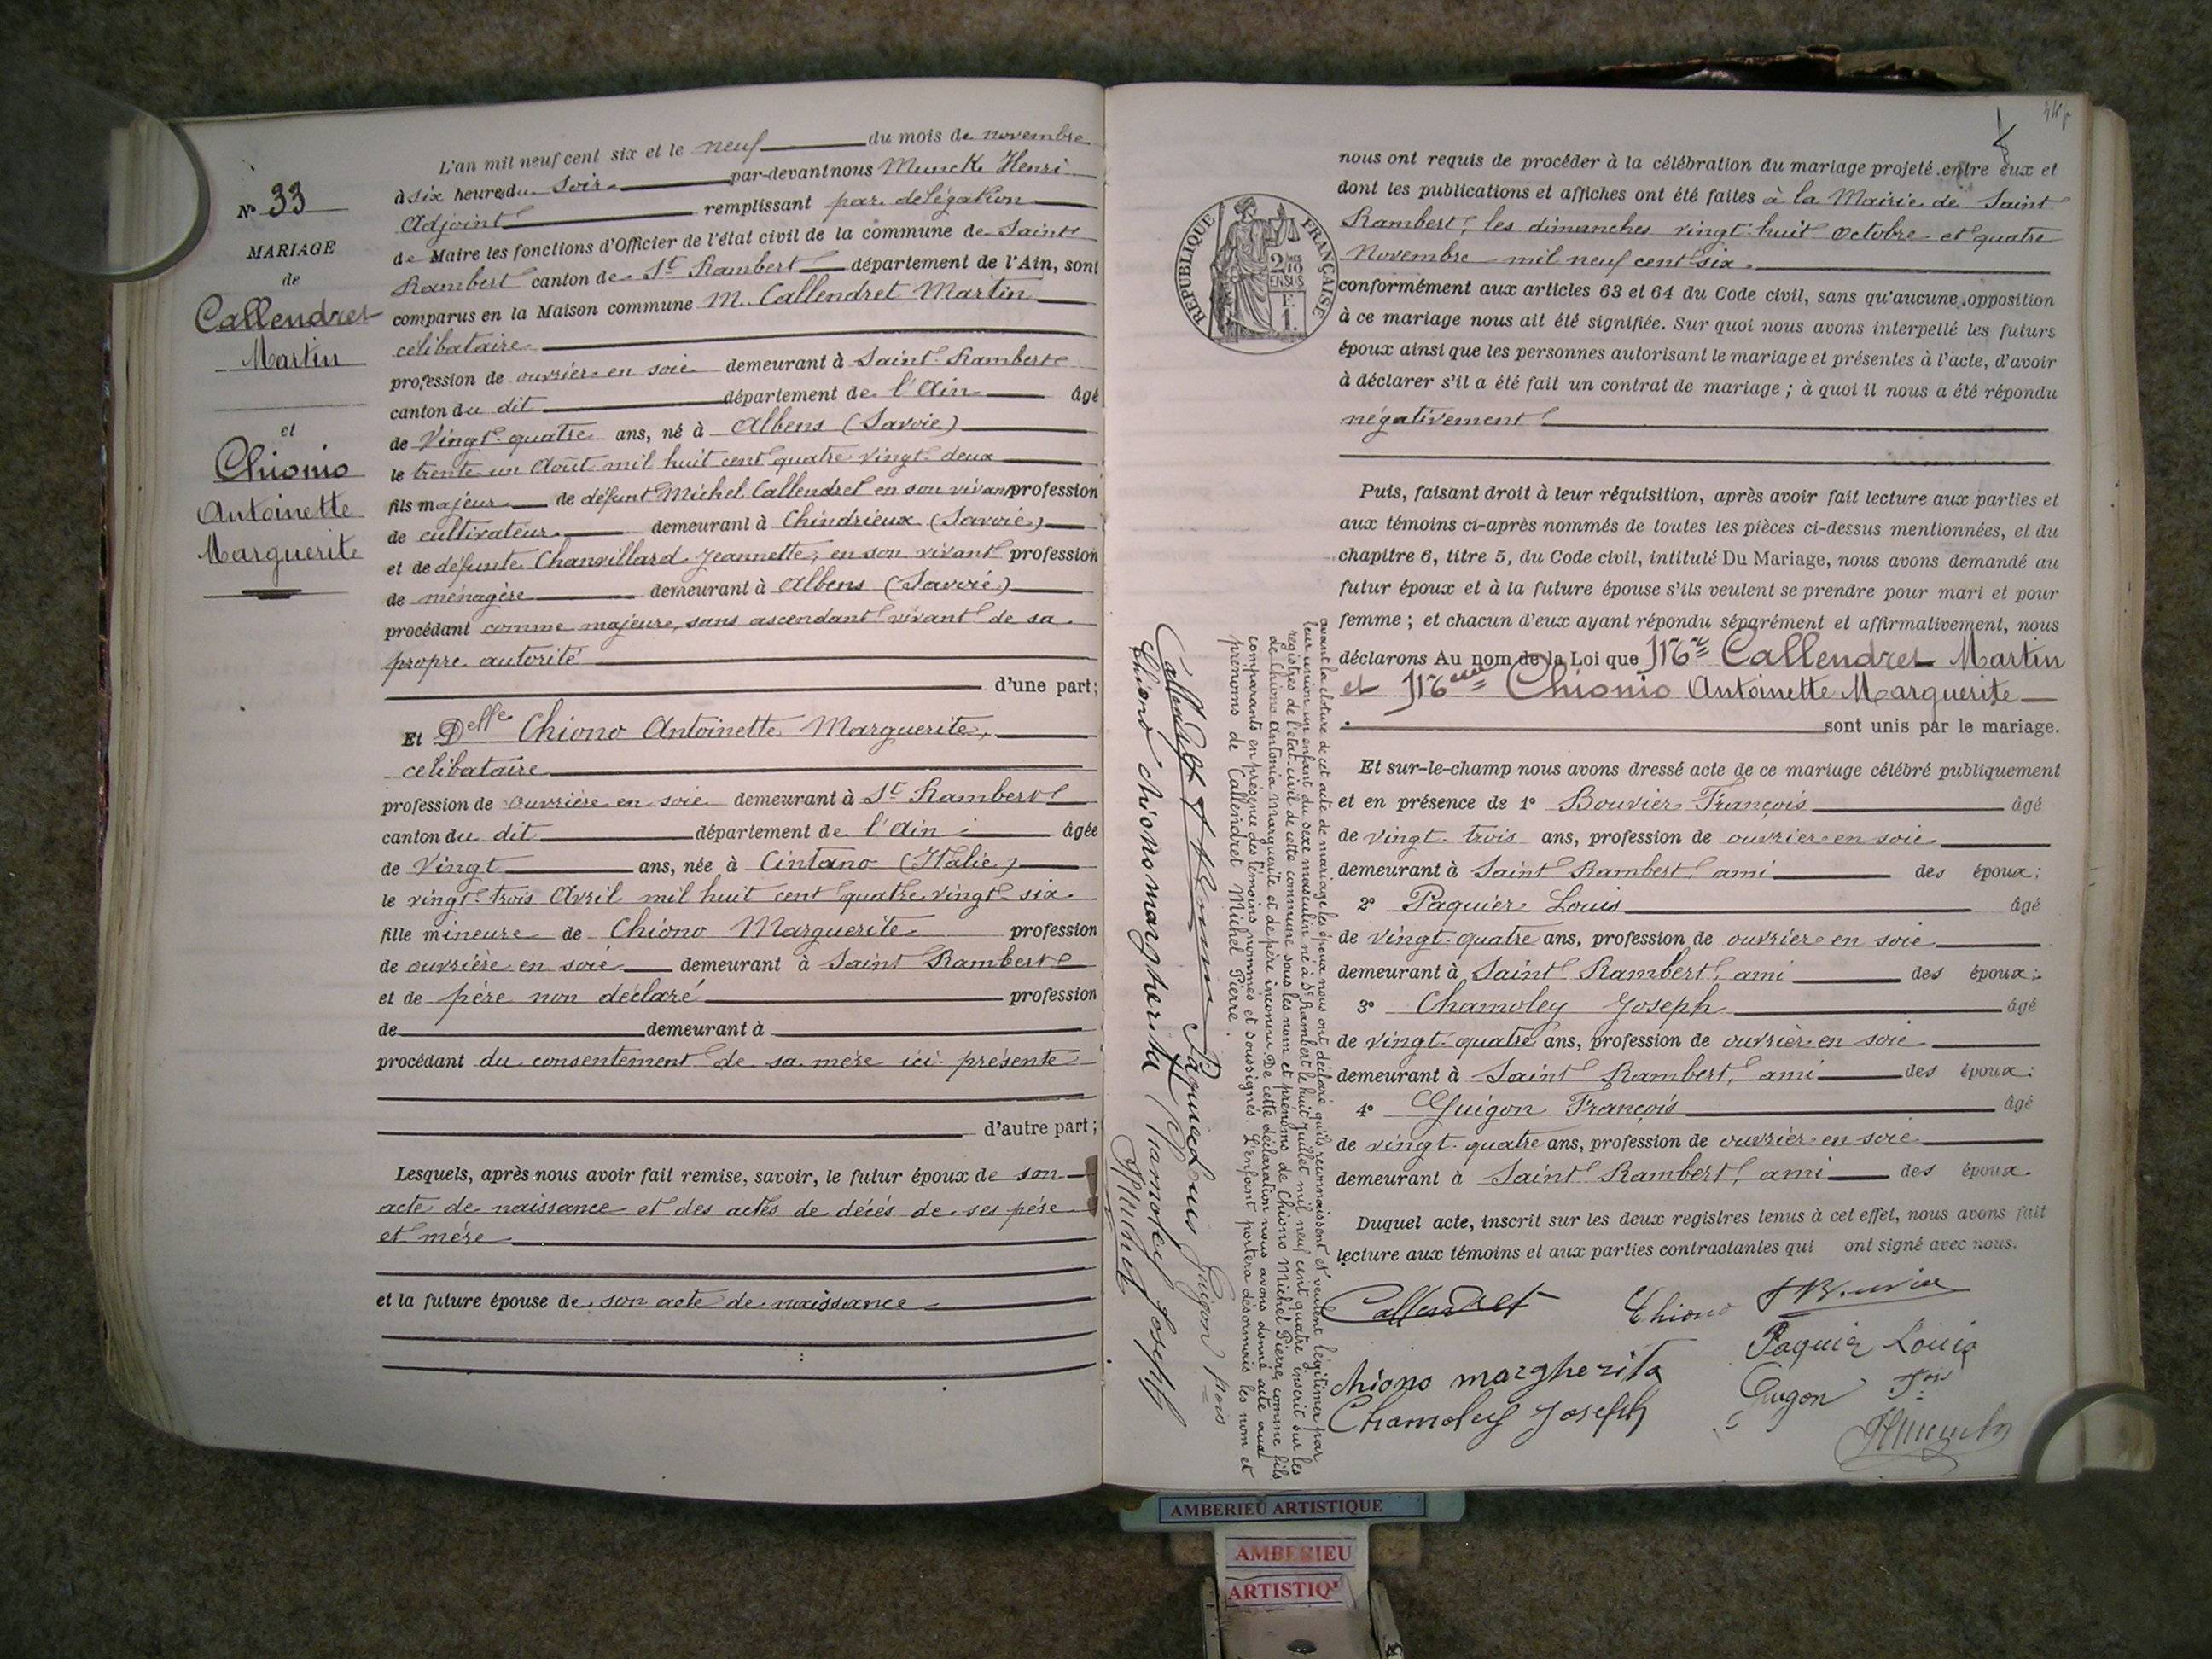 N° 33
MARIAGE
de
Callendret
Martin
et
Chionio
Antoinette
Marguerite
L'an mil neuf cent six et le neuf du mois de novembre
à six heures du Soir par-devant nous Munck Henri
Adjoint remplissant par délégation
de Maire les fonctions d'Officier de l'état civil de la commune de Saint
Rambert canton de St Rambert département de l'Ain, sont
comparus en la Maison commune M. Callendret Martin
célibataire
profession de ouvrier en soie demeurant à Saint Rambert
canton du dit département de l'Ain âgé
de Vingt-quatre ans, né à Albens (Savoie)
le trente un Août mil huit cent quatre vingt deux
fils majeur de défunt Michel Callendret en son vivant profession
de cultivateur demeurant à Chindrieux (Savoie)
et de défunte Chanvillard Jeannette, en son vivant profession
de ménagère demeurant à Albens (Savoie)
procédant comme majeure, sans ascendant vivant de sa
propre autorité
d'une part;
Et Delle Chiono Antoinette Marguerite,
celibataire
profession de ouvrière en soie demeurant à St Rambert
canton du dit département de l'Ain âgée
de Vingt ans, née à Cintano (Italie)
le vingt-trois Avril mil huit cent quatre vingt-six
fille mineure de Chiono Marguerite profession
de ouvrière en soie demeurant à Saint Rambert
et de père non déclaré profession
de demeurant à
procédant du consentement de sa mère ici présente
d'autre part;
Lesquels, après nous avoir fait remise, savoir, le futur époux de son
acte de naissance et des actes de décès de ses père
et mère
et la future épouse de son acte de naissance
RÉPUBLIQUE FRANÇAISE
2/10 EN SUS
F.
1.
nous ont requis de procéder à la célébration du mariage projeté entre eux et
dont les publications et affiches ont été faites à la Mairie de Saint
Rambert, les dimanches vingt-huit Octobre et quatre
Novembre mil neuf cent six.
conformément aux articles 63 et 64 du Code civil, sans qu'aucune opposition
à ce mariage nous ait été signifiée. Sur quoi nous avons interpellé les futurs
époux ainsi que les personnes autorisant le mariage et présentes à l'acte, d'avoir
à déclarer s'il a été fait un contrat de mariage; à quoi il nous a été répondu
négativement
Puis, faisant droit à leur réquisition, après avoir fait lecture aux parties et
aux témoins ci-après nommés de toutes les pièces ci-dessus mentionnées, et du
chapitre 6, titre 5, du Code civil, intitulé Du Mariage, nous avons demandé au
futur époux et à la future épouse s'ils veulent se prendre pour mari et pour
femme; et chacun d'eux ayant répondu séparément et affirmativement, nous
déclarons Au nom de la Loi que Mr Callendret Martin
et Melle Chionio Antoinette Marguerite
sont unis par le mariage.
Et sur-le-champ nous avons dressé acte de ce mariage célébré publiquement
et en présence de 1° Bouvier François âgé
de vingt-trois ans, profession de ouvrier en soie
demeurant à Saint Rambert, ami des époux;
2° Paquier Louis âgé
de vingt-quatre ans, profession de ouvrier en soie
demeurant à Saint Rambert, ami des époux;
3° Chamoley Joseph âgé
de vingt-quatre ans, profession de ouvrier en soie
demeurant à Saint Rambert, ami des époux:
4° Guigon François âgé
de vingt-quatre ans, profession de ouvrier en soie
demeurant à Saint Rambert, ami des époux.
Duquel acte, inscrit sur les deux registres tenus à cet effet, nous avons fait
lecture aux témoins et aux parties contractantes qui ont signé avec nous.
Callendret Chiono F Bouvier
Paquier Louis
Chiono margherita Guigon Fois
Chamoley Joseph HMunck
avant la cloture de cet acte de mariage les époux nous ont déclaré qu'ils reconnaissent et veulent légitimer par
leur union un enfant du sexe masculin né à St Rambert le huit juillet mil neuf cent quatre inscrit sur les
registres de l'état-civil de cette commune sous les nom et prénoms de Chiono Michel Pierre, comme fils
de Chiono Antonia Marguerite et de père inconnu. De cette déclaration nous avons donné acte aux
comparants en présence des témoins nommés et soussignés. L'enfant portera désormais les nom et
prénoms de Callendret Michel Pierre.
Callendret Paquier Louis Guigon Fois
Chiono chiono margherita Chamoley Joseph
HMunck
AMBERIEU ARTISTIQUE
AMBERIEU
ARTISTIQ